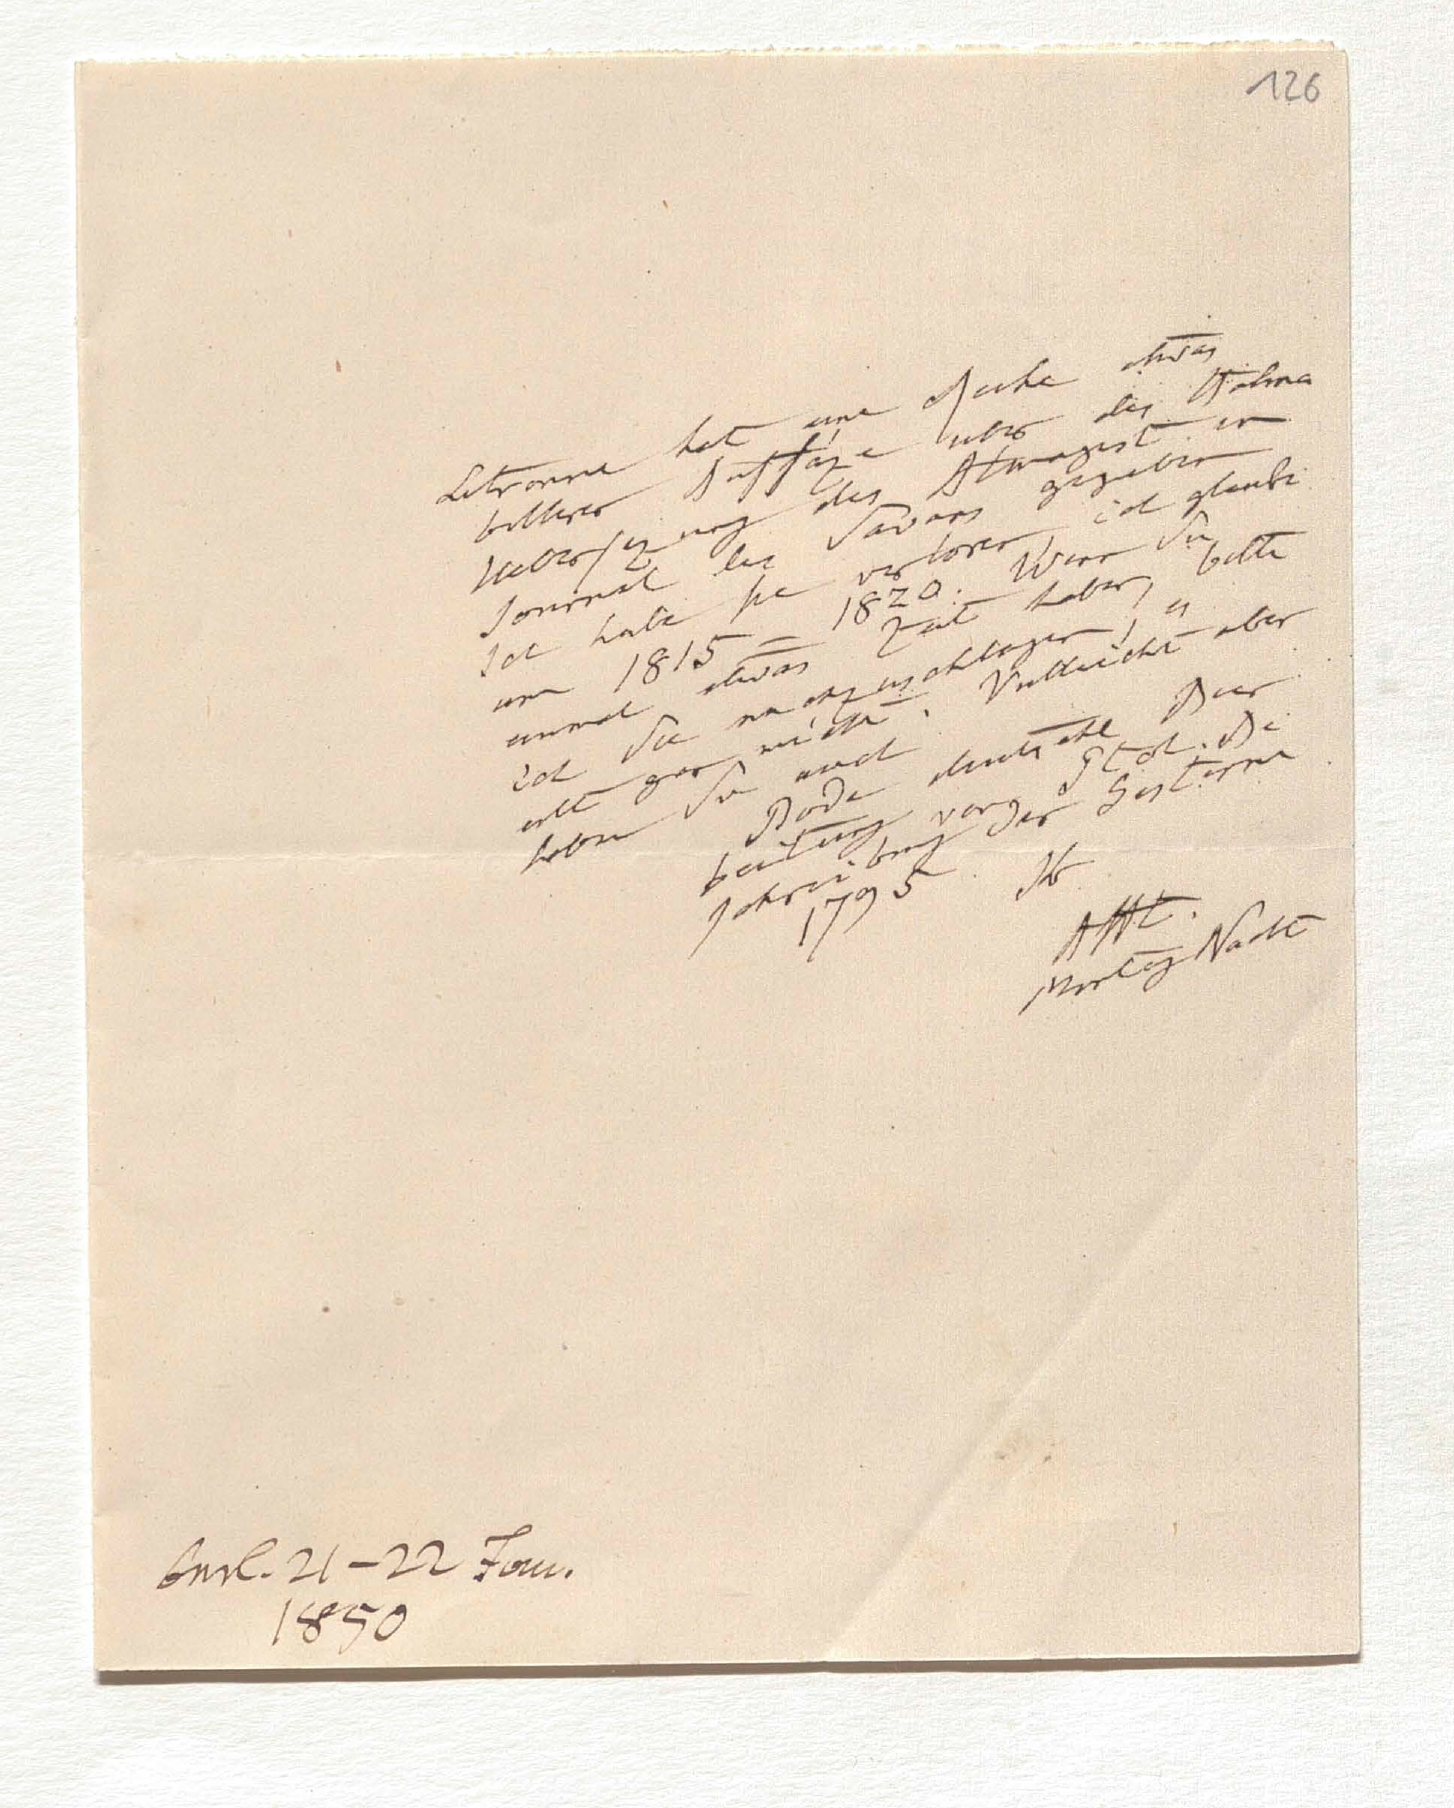 126
Letronne hat eine Reihe etwas
bitterer Aufsäze über des Halma
Uebersezung des Almagest im
Journal des Savans gegeben
Ich habe sie verloren, ich glaube
um 1815 – 1820. Wenn Sie
einmal etwas Zeit haben, bitte
ich Sie nachzuschlagen, es
eilt gar nicht. Vielleicht aber
haben Sie auch
Bode deutsche Bear
beitung von Ptol. Be
schreibung der Gestirne
1795. Ihr
AHt.
Montag Nacht
Berl. 21–22 Jan.
1850